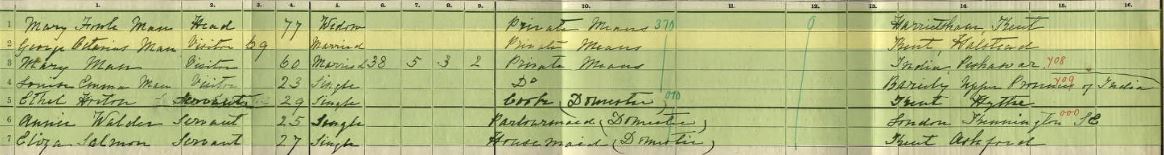 1. 2. 3. 4. 5. 6. 7. 8. 9. 10. 11. 12. 13. 14. 15. 16.
1 Mary Fowle Man Head 77 Widow Private Means 370 0 Harrietsham, Kent
2 George Octavius Man Visitor 69 Married Private Means Kent, Halstead
3 Mary Man Visitor 60 Married 38 5 3 2 Private Means India, Peshawar 408
4 Louisa Emma Man Visitor 23 Single Do Bareily Upper Provinces of India 409
5 Ethel Horton Servant 29 Single Cook (Domestic) 010 Kent Hythe
6 Annie Walder Servant 25 Single Parlourmaid (Domestic) London Kennington SE 000
7 Eliza Salmon Servant 27 Single Housemaid (Domestic) Kent Ashford